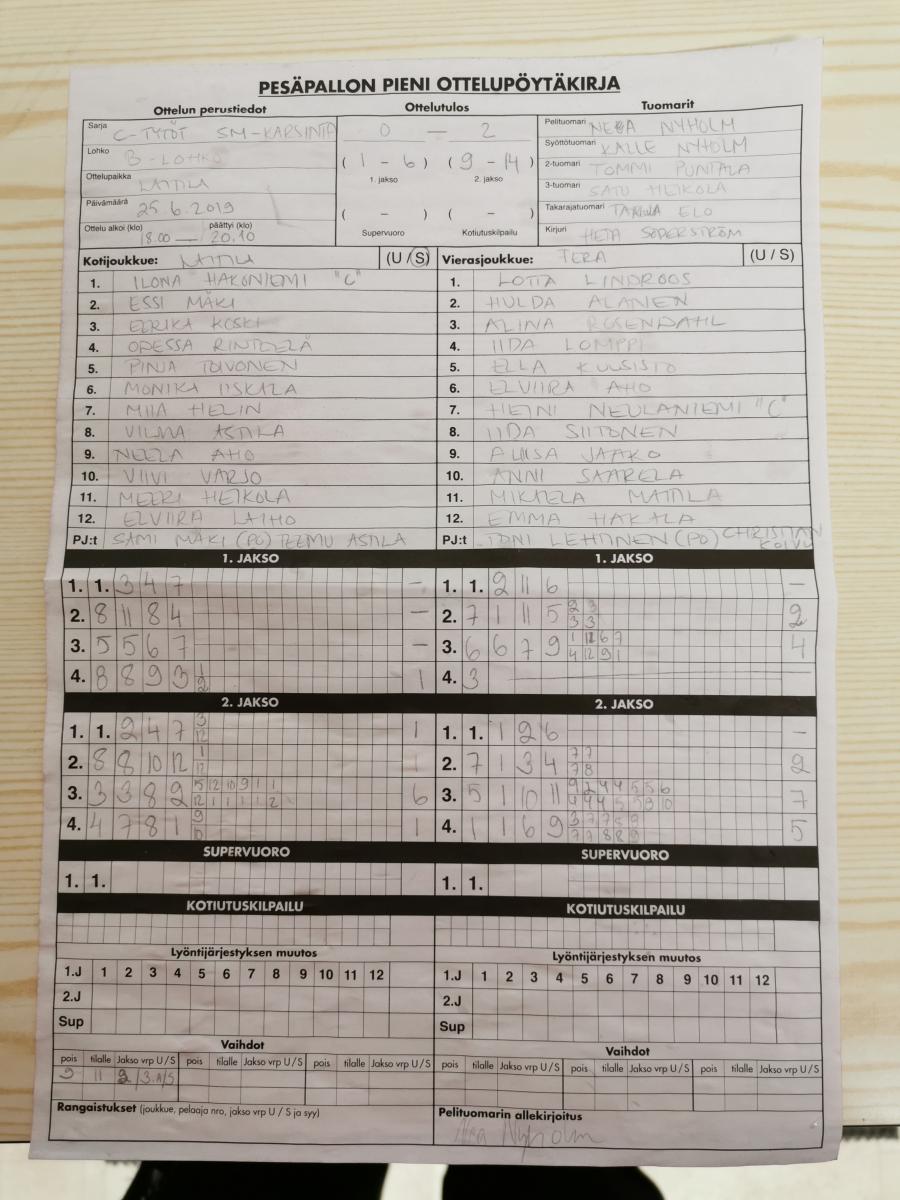 PESÄPALLON PIENI OTTELUPÖYTÄKIRJA
Ottelun perustiedot Ottelutulos Tuomarit
Sarja C-TYTÖT SM-KARSINTA
Lohko B-LOHKO
Ottelupaikka LAITILA
Päivämäärä 25.6.2019
Ottelu alkoi (klo) päättyi (klo)
18.00 — 20.10
0 — 2
( 1 - 6 ) ( 9 - 14 )
1. jakso 2. jakso
( - ) ( - )
Supervuoro Kotiutuskilpailu
Pelituomari NEEA NYHOLM
Syöttötuomari KALLE NYHOLM
2-tuomari TOMMI PUNTALA
3-tuomari SATU HEIKOLA
Takarajatuomari ELO
Kirjuri HETA SÖDERSTRÖM
Kotijoukkue: LAITILA (U / S)
1. ILONA HAKONIEMI "C"
2. ESSI MÄKI
3. EERIKA KOSKI
4. ODESSA RINTEELÄ
5. PINJA TOIVONEN
6. MONIKA IISKALA
7. MIIA HELIN
8. VILMA ASTILA
9. NEELA AHO
10. VIIVI VARJO
11. MEERI HEIKOLA
12. ELVIIRA LAIHO
PJ:t SAMI MÄKI (PO) TEEMU ASTILA
Vierasjoukkue: TERA (U / S)
1. LOTTA LINDROOS
2. HULDA ALANEN
3. ALINA ROSENDAHL
4. IIDA LOMPPI
5. ELLA KUUSISTO
6. ELVIIRA AHO
7. HEINI NEULANIEMI "C"
8. IIDA SIITONEN
9. JAAKO
10. ANNI SAARELA
11. MIKAELA MATTILA
12. EMMA HAKALA
PJ:t TONI LEHTINEN (PO) CHRISTIAN KOIVU
1. JAKSO
1. 1. 3 4 7 —
2. 8 11 8 4 —
3. 5 5 6 7 —
4. 8 8 9 3 1
1
2
2. JAKSO
1. 1. 2 4 7 1
3
12
2. 8 8 10 12 1
1
12
3. 3 3 8 9 6
5 12 10 9 1 1
12 1 1 1 1 2
4. 4 7 8 1 1
9
10
SUPERVUORO
1. 1.
KOTIUTUSKILPAILU
1. JAKSO
1. 1. 2 11 6 —
2. 7 1 11 5 2
2 3
3 3
3. 6 6 7 9 4
1 12 6 7
4 12 9 1
4. 3
2. JAKSO
1. 1. 1 2 6 —
2. 7 1 3 4 2
7 7
7 8
3. 5 1 10 11 7
9 2 4 4 5 5 6
4 4 4 5 5 8 10
4. 1 1 6 9 5
3 7 7 5 9
7 7 8 8 9
SUPERVUORO
1. 1.
KOTIUTUSKILPAILU
Lyöntijärjestyksen muutos
1.J 1 2 3 4 5 6 7 8 9 10 11 12
2.J
Sup
Vaihdot
pois tilalle Jakso vrp U / S pois tilalle Jakso vrp U / S pois tilalle Jakso vrp U / S
9 11 2/3.A/S
Rangaistukset (joukkue, pelaaja nro, jakso vrp U / S ja syy)
Lyöntijärjestyksen muutos
1.J 1 2 3 4 5 6 7 8 9 10 11 12
2.J
Sup
Vaihdot
pois tilalle Jakso vrp U / S pois tilalle Jakso vrp U / S pois tilalle Jakso vrp U / S
Pelituomarin allekirjoitus
Nyholm